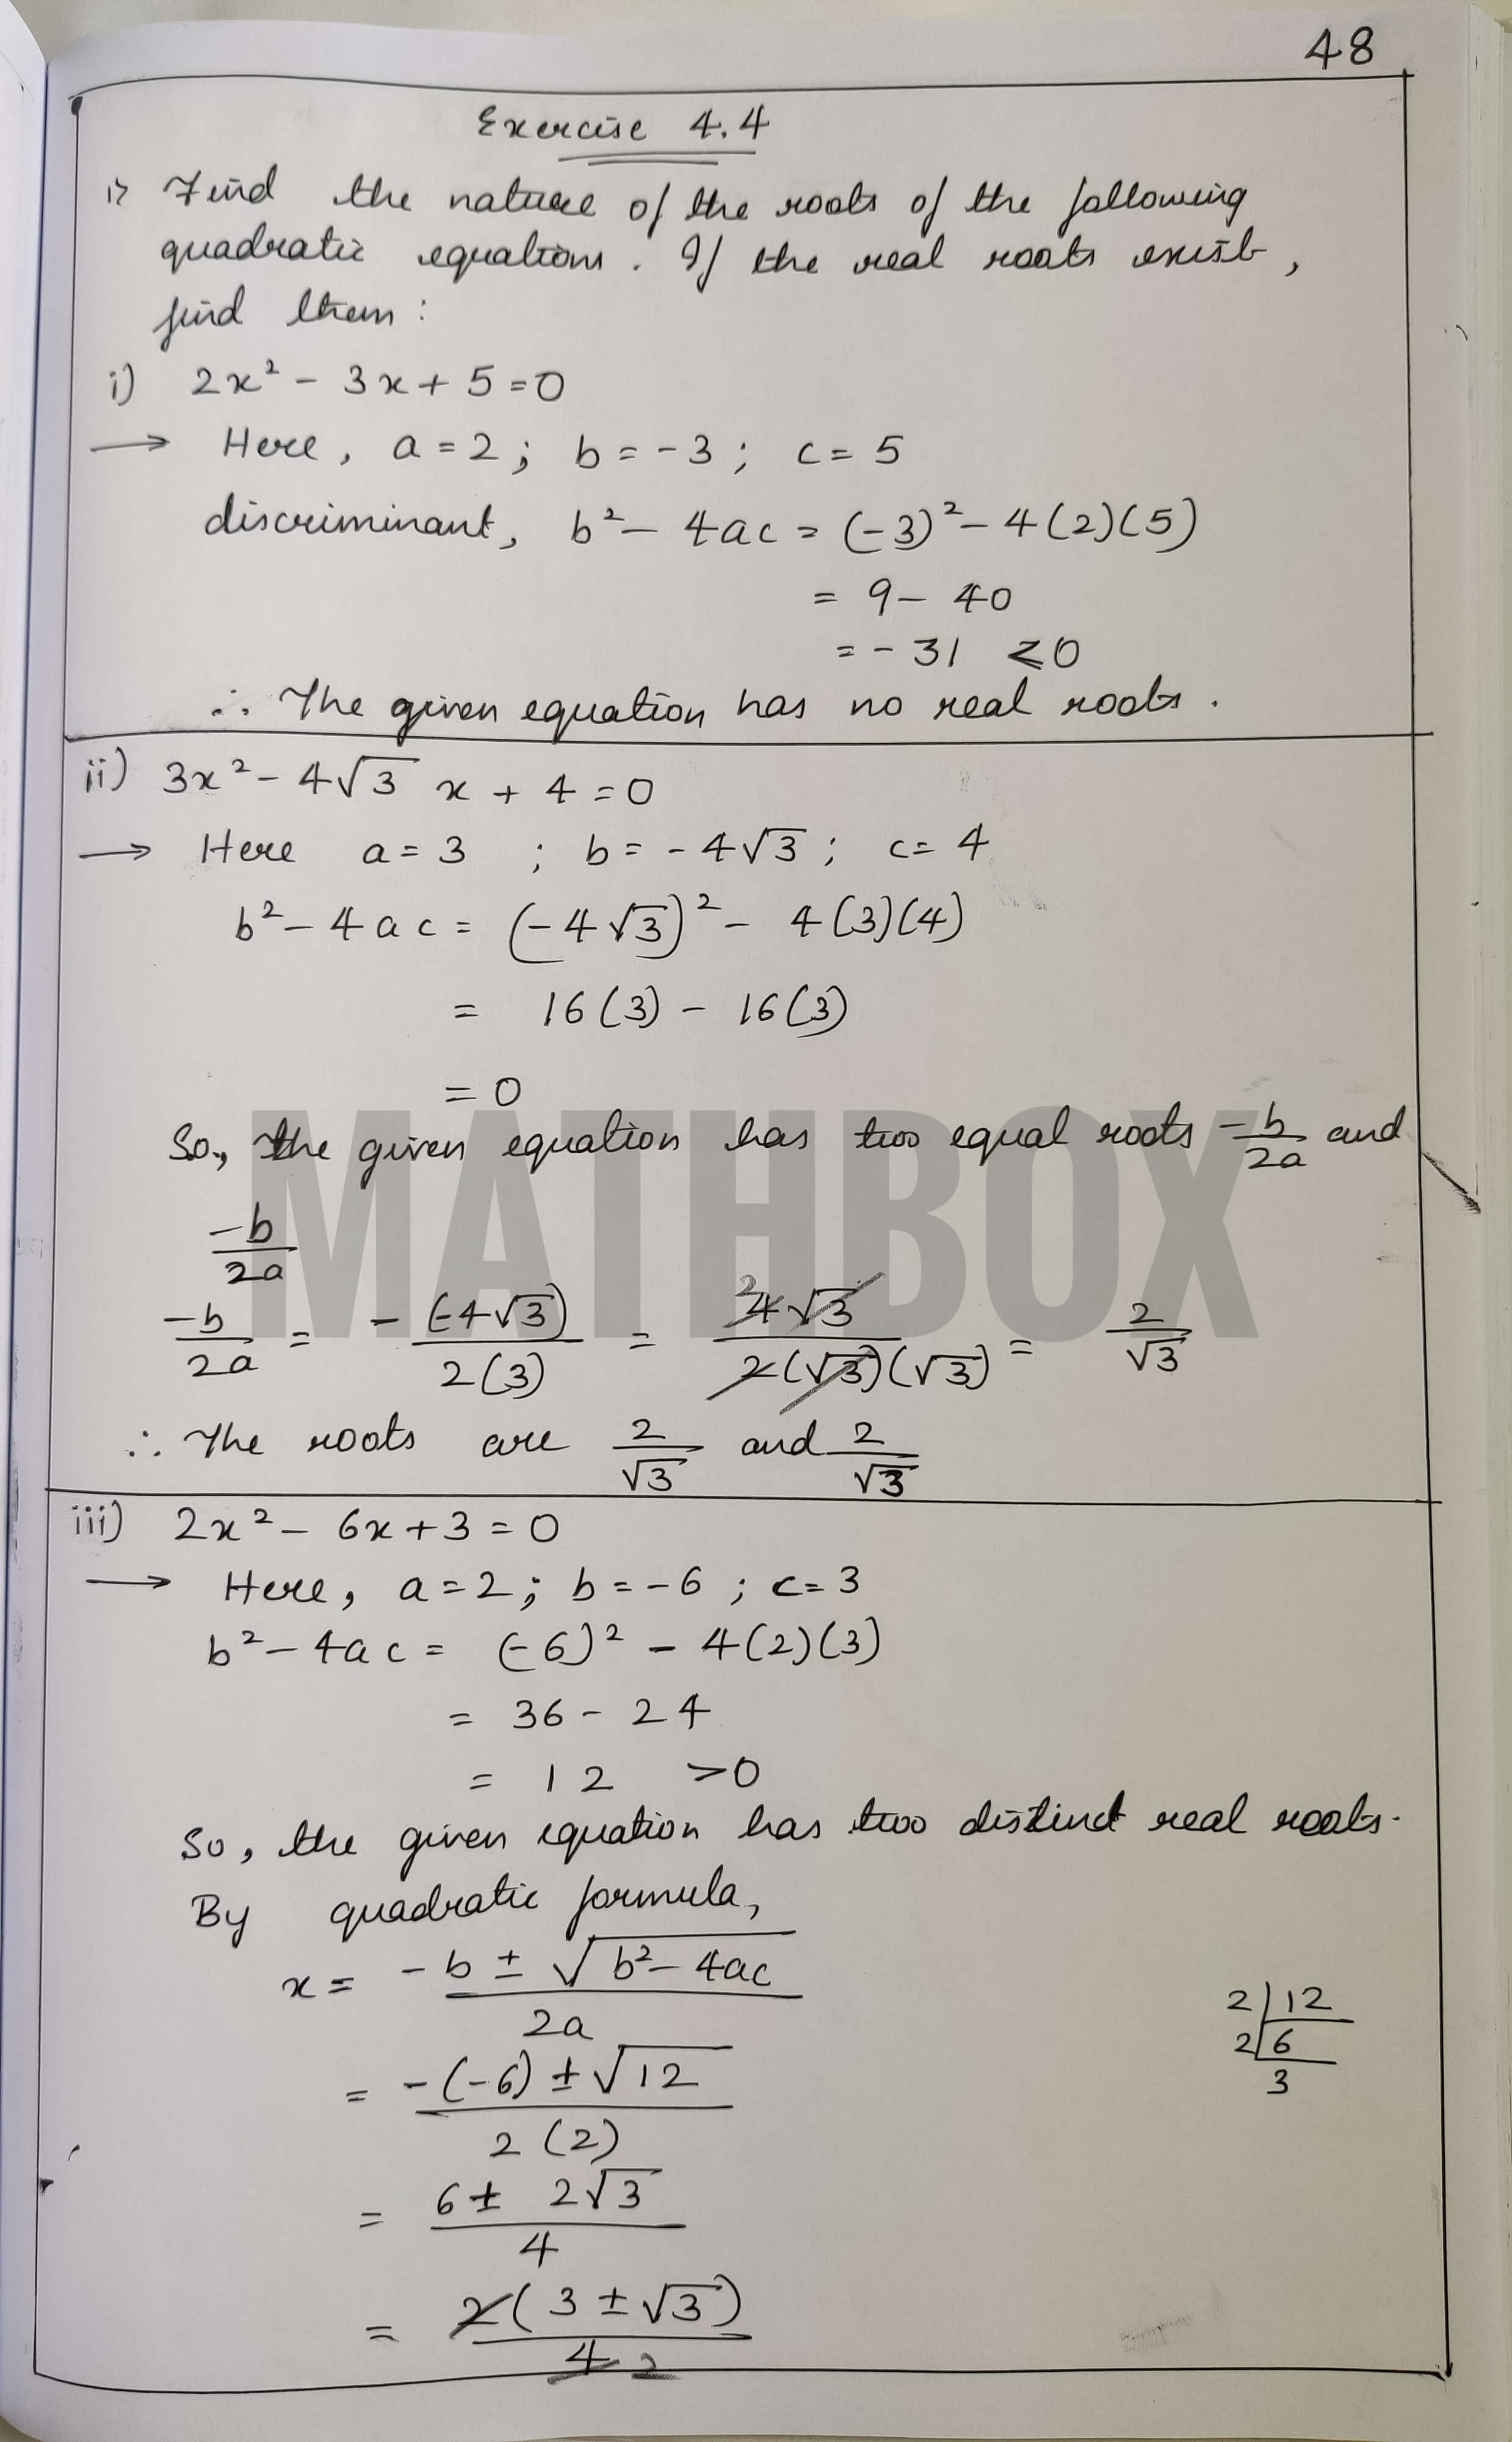 48
Exercise 4.4
1) Find the nature of the roots of the following
quadratic equations. If the real roots exist,
find them :
i) 2x² - 3x + 5 = 0
→ Here, a = 2 ; b = -3 ; c = 5
discriminant, b² - 4ac = (-3)² - 4(2)(5)
= 9 - 40
= -31 < 0
∴ The given equation has no real roots.
ii) 3x² - 4√3 x + 4 = 0
→ Here a = 3 ; b = -4√3 ; c = 4
b² - 4ac = (-4√3)² - 4(3)(4)
= 16(3) - 16(3)
= 0
So, the given equation has two equal roots -b/2a and
-b/2a
-b/2a = -(-4√3)/2(3) = 2 4√3/2(√3)(√3) = 2/√3
∴ The roots are 2/√3 and 2/√3
MATHBOX
iii) 2x² - 6x + 3 = 0
→ Here, a = 2 ; b = -6 ; c = 3
b² - 4ac = (-6)² - 4(2)(3)
= 36 - 24
= 12 > 0
So, the given equation has two distinct real roots.
By quadratic formula,
x = -b ± √b² - 4ac/2a
2 | 12
2 | 6
3
= -(-6) ± √12/2(2)
= 6 ± 2√3/4
= 2(3 ± √3)/4 2